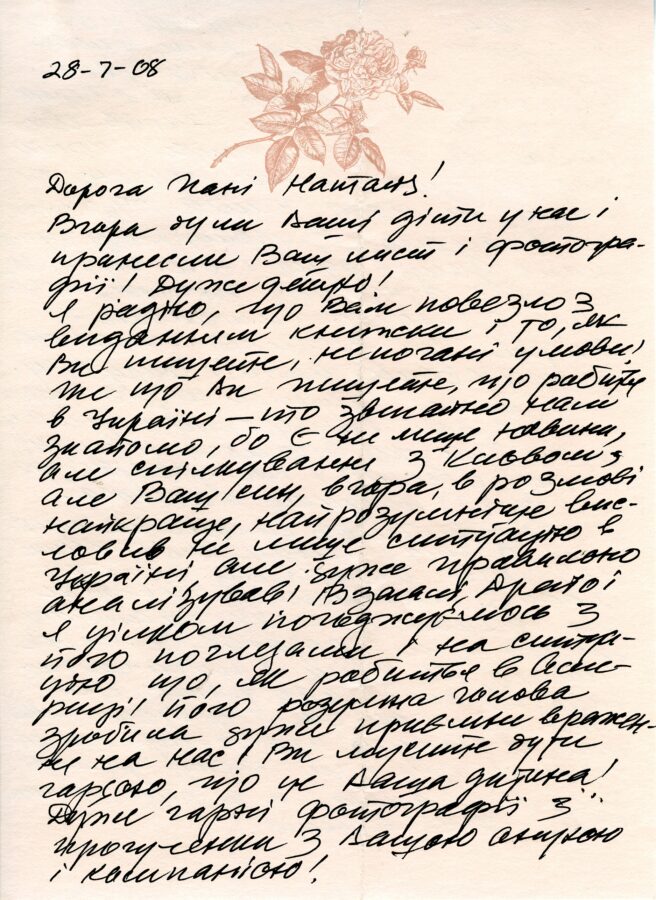 28-7-08
Дорога Пані Наталя!
Вчора були Ваші діти у нас і
принесли Ваш лист і фотогра-
фії! Дуже дякую!
Я радію, що Вам повезло з
виданням книжки і то, як
Ви пишете, непогані умови!
Те що Ви пишете, що робиться
в Україні – то звичайно нам
знайомо, бо є не лише новини,
але спілкування з Києвом,
але Ваш син, вчора, в розмові
найкраще, найрозумніше вис-
ловив не лише ситуацію в
Україні але дуже правильно
аналізував! Взагалі, і
я цілком погоджуємось з
його поглядами і на ситуа-
цію що, як робиться в Аме-
риці! Його розумна голова
зробила дуже приємни вражен-
ня на нас! Ви мусите бути
гордою, що це Ваша дитина!
Дуже гарні фотографії з
прогулянки з Вашою онукою
і компанією!